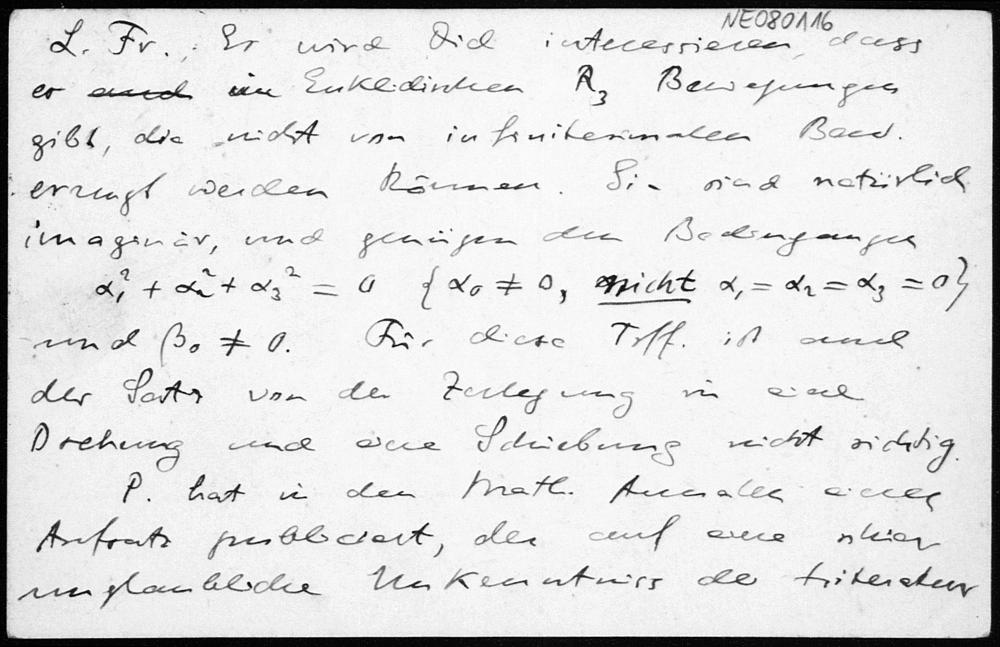 NE080116
L. Fr. Es wird Dich interessieren, dass
es auch im Euklidischen R₃ Bewegungen
gibt, die nicht von infinitesimalen Bew.
erzeugt werden können. Sie sind natürlich
imaginär, und genügen den Bedingungen
α₁² + α₂² + α₃² = 0 {α₀ ≠ 0, nicht α₁ = α₂ = α₃ = 0}
und β₀ ≠ 0. Für diese Trff. ist auch
der Satz von der Zerlegung in eine
Drehung und eine Schiebung nicht richtig.
P. hat in den Math. Annalen einen
Aufsatz publiciert, der auf eine schier
unglaubliche Unkenntniss der Literatur